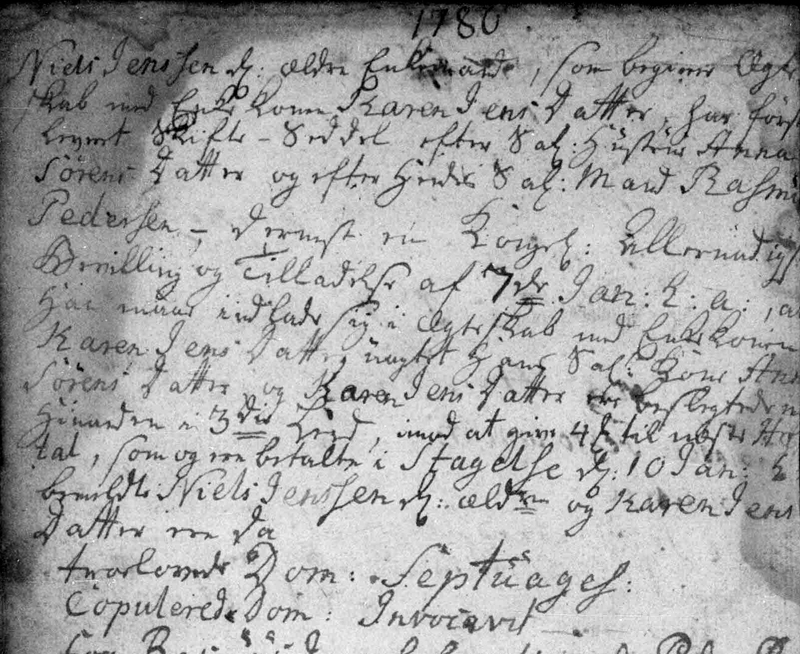 1786
Niels Jenssen d: ældre Enkemand, som begierer Ægte
skab med Enke Konen Karen Jens Datter, har først
leveret Skifte-Seddel efter Sal: Hustrue Anna
Sørens Datter og efter Hendes Sal: Mand Rasmus
Pedersen, dernest en Kongel: Allernaadigst
Bevilling og Tilladelse af 7de Jan: h: a: , at
Han maae indlade sig i Ægteskab med Enke Konen
Karen Jens Datter, uagtet Hans Sal: Kone Anna
Sørens Datter og Karen Jens Datter ere beslegtede
Hinanden i 3die Leed, imod at give 4 til næste Hos
tal, som og ere betalte i Slagelse d: 10 Jan: h
bemeldte Niels Jenssen d: ældre og Karen Jens
Datter ere da
troelovede Dom: Septuages:
Copulerede Dom: Invocavit